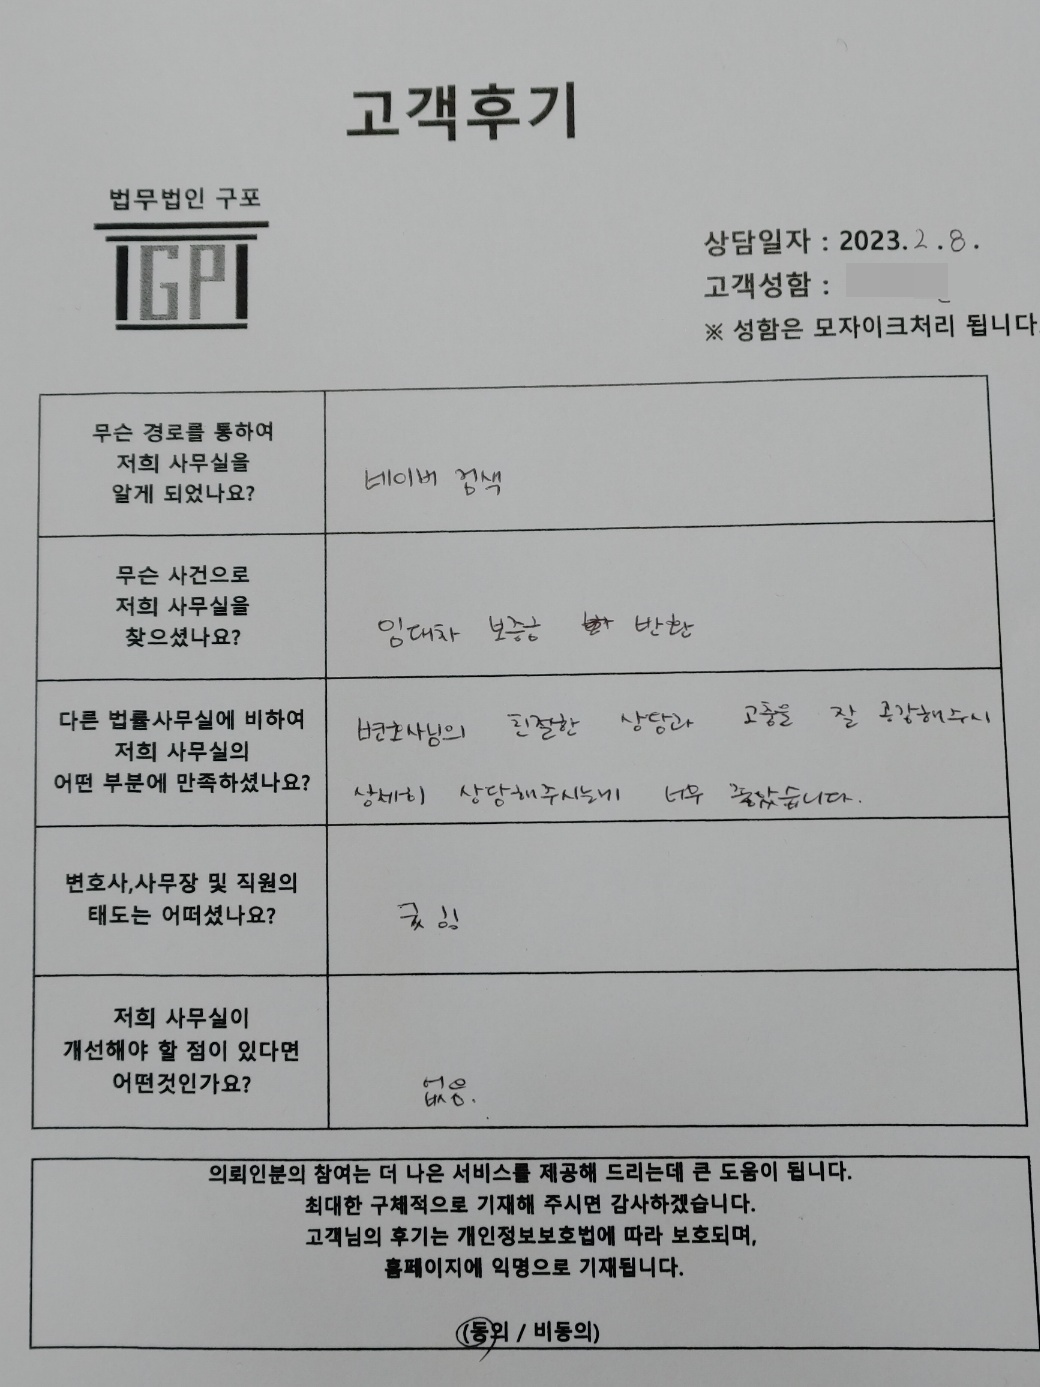 고객후기
법무법인 구포
IGPI
상담일자 : 2023. 2. 8.
고객성함 :
※ 성함은 모자이크처리 됩니다.
무슨 경로를 통하여
저희 사무실을
알게 되었나요?
네이버 검색
무슨 사건으로
저희 사무실을
찾으셨나요?
임대차 보증금 반환
다른 법률사무실에 비하여
저희 사무실의
어떤 부분에 만족하셨나요?
변호사님의 친절한 상담과 고충을 잘 공감해주시
상세히 상담해주시는게 너무 좋았습니다.
변호사,사무장 및 직원의
태도는 어떠셨나요?
굿 임
저희 사무실이
개선해야 할 점이 있다면
어떤것인가요?
없음.
의뢰인분의 참여는 더 나은 서비스를 제공해 드리는데 큰 도움이 됩니다.
최대한 구체적으로 기재해 주시면 감사하겠습니다.
고객님의 후기는 개인정보보호법에 따라 보호되며,
홈페이지에 익명으로 기재됩니다.
(동의 / 비동의)